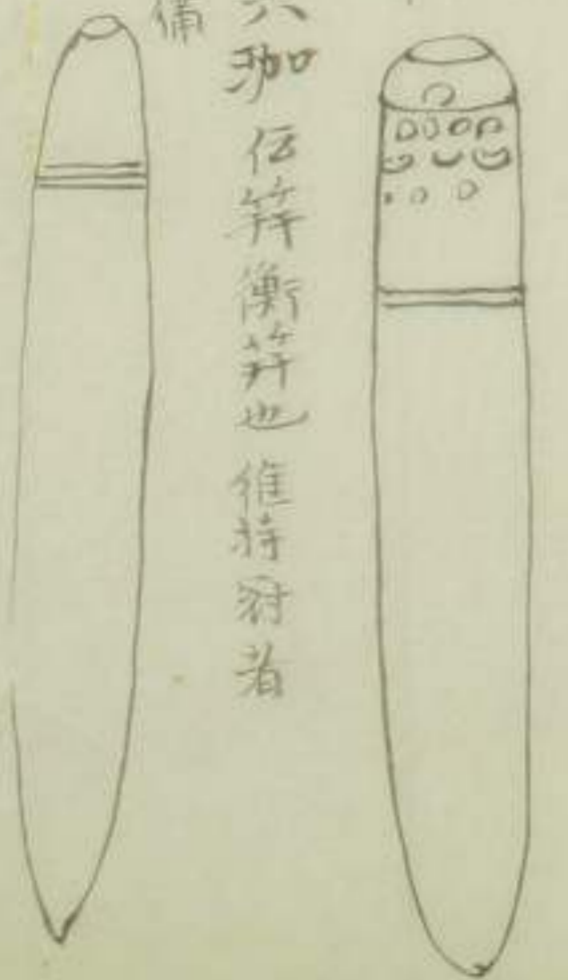 珈 伝笄衡笄也 維持冠者
備